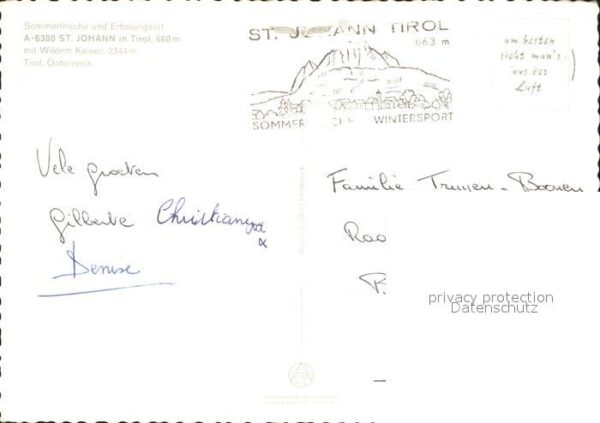 Sommerfrische und Erholungsort
A-6380 ST. JOHANN in Tirol, 660 m
mit Wildem Kaiser, 2344 m,
Tirol, Österreich
ST. JOHANN TIROL
663 m
SOMMER WINTERSPORT
am besten
sieht man's
aus der
Luft
Vele groeten
Gilberte Christiane
Denise
Familie Truyen - Boonen
Roo
P.
privacy protection
Datenschutz